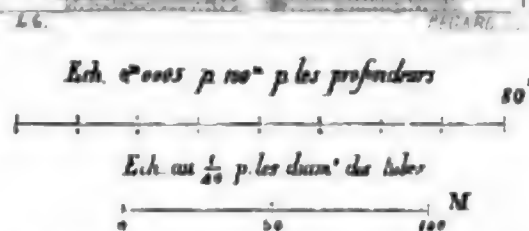 L.G.
PÉGARD
Ech. 0m0005 p. 100m p. les profondeurs
80
Ech. au 1/40 p. les diam.s des tubes
M
0 50 100